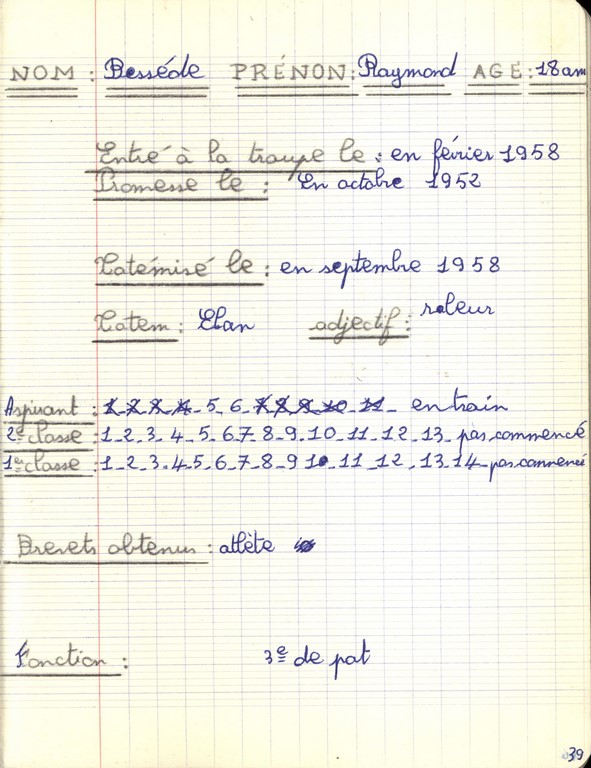 NOM : Bessède PRÉNON : Raymond AGE : 18 ans
Entré à la troupe le : en février 1958
Promesse le : En octobre 1952
Totémisé le : en septembre 1958
Totem : Elan adjectif : raleur
Aspirant : 1_2_3_4_5_6_7_8_9_10_11_ en train
2e classe : 1_2_3_4_5_6_7_8_9_10_11_12_13_ pas commencé
1er classe : 1_2_3_4_5_6_7_8_9_10_11_12_13_14_ pas commencé
Brevets obtenus : athlète
Fonction : 3e de pat
39